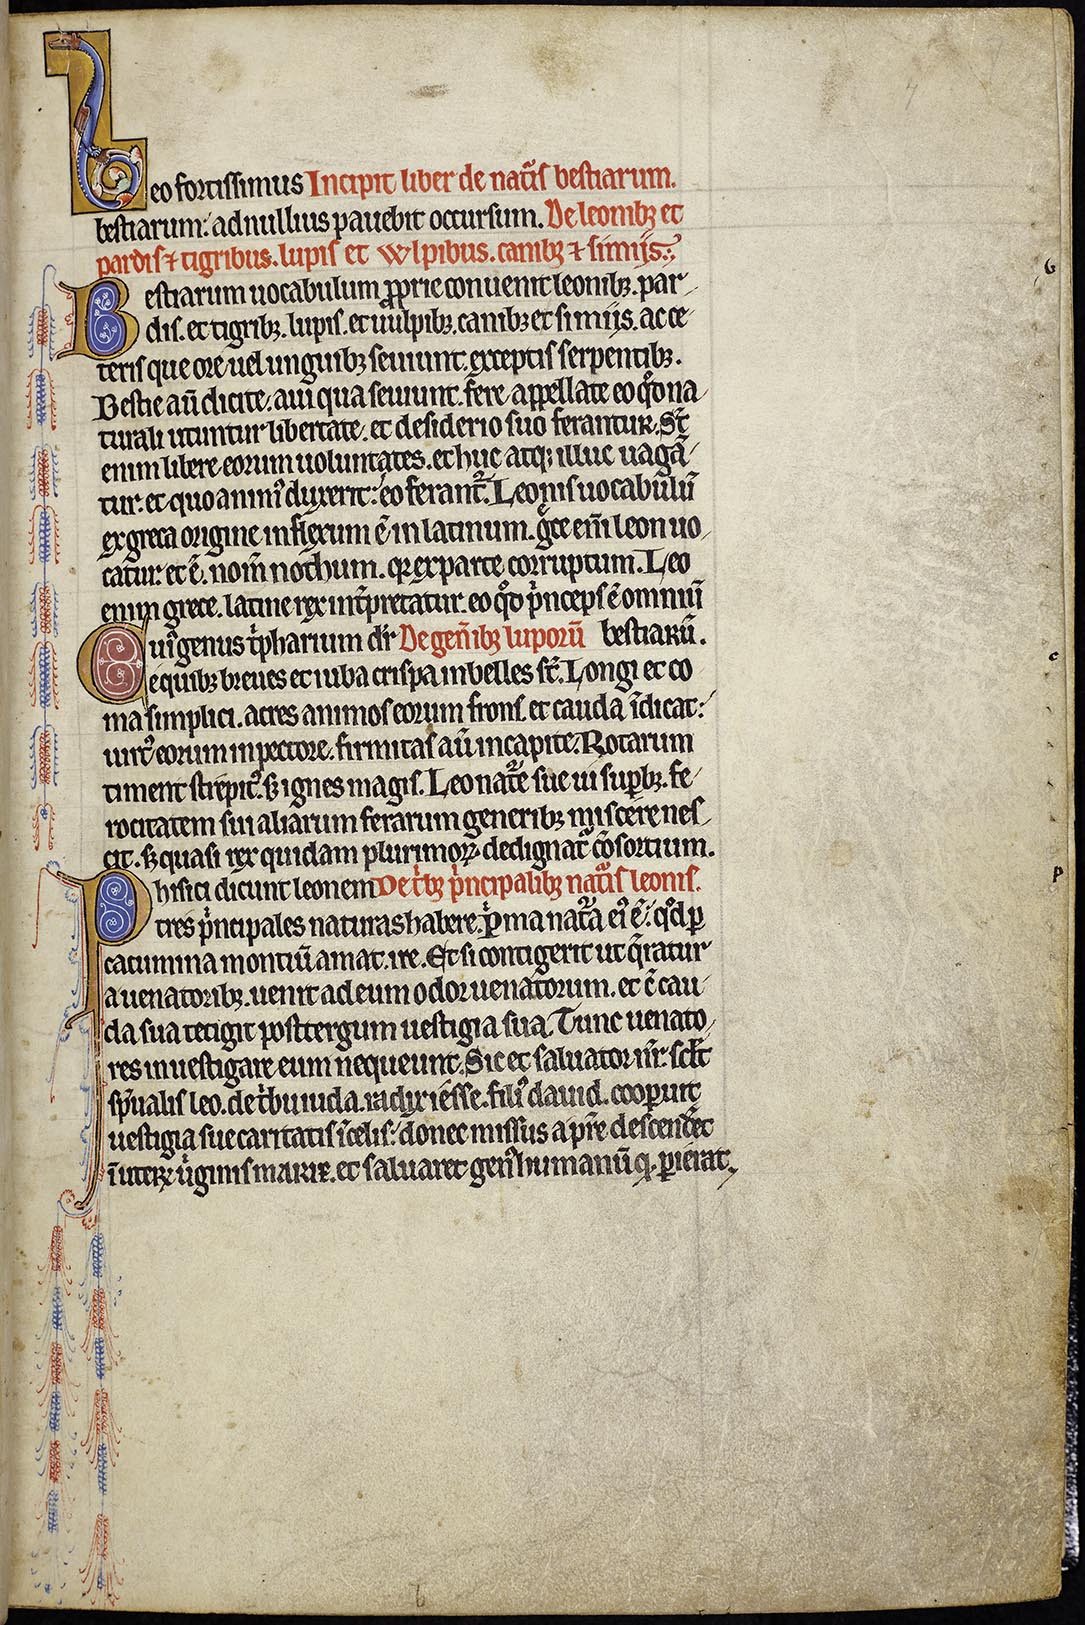 Leo fortissimus Incipit liber de nat᷑is bestiarum.
bestiarum: ad nullius pauebit occursum. De leonibꝫ et
pardis ⁊ tigribus. lupis et Wlpibus. canibꝫ ⁊ simijs.
Bestiarum uocabulum ꝓprie conuenit leonibꝫ. par-
dis. et tigribꝫ. lupis. et uulpibꝫ. canibꝫ et simijs. ac ce-
teris que ore uel unguibꝫ seuiunt. exceptis serpentibꝫ.
Bestie aū dicte. a ui qua seuiunt. fere appellate eo qͦd na-
turali utuntur libertate. et desiderio suo ferantur. St̄
enim libere eorum uoluntates. et huc atqꝫ illuc uagā-
tur. et quo animꝰ duxerit: eo ferant᷑. Leonis uocabulū
ex greca origine inflexum ē in latinum. grͣce em̄ leon uo-
catur. et ē. nom̄ nothum. qꝛ ex parte corruptum. Leo
enim grece. latine rex int̄pretatur. eo qͦd pͥnceps ē omniū
Cuiꝰ genus tͥpharium dr̄ De gen̄ibꝫ luporū bestiarū.
e quibꝫ breues et iuba crispa inbelles st̄. Longi et co-
ma simplici. acres animos eorum frons. et cauda īdicat:
uirtꝰ eorum in pectore. firmitas aū in capite. Rotarum
timent strepitꝰ. sꝫ ignes magis. Leo nat᷑e sue ui suꝑbꝫ. fe-
rocitatem sui aliarum ferarum generibꝫ miscere nes-
cit. sꝫ quasi rex quidam plurimoꝝ dedignat᷑ cōsortium.
Phisici dicunt leonem De tͥbꝫ pͥncipalibꝫ nat᷑is leonis.
tres pͥncipales naturas habere. pͥma nat᷑a eiꝰ ē: qͦd ꝑ
catumina montiū amat ire. Et si contigerit ut qͣratur
a uenatoribꝫ. uenit ad eum odor uenatorum. et c̄ cau-
da sua tetigit posttergum uestigia sua. Tunc uenato-
res inuestigare eum nequeunt. Sic et saluator nr̄. sclt̄
sp̄ualis leo. de tͥbu iuda. radix iesse. filiꝰ dauid. cooꝑuit
uestigia sue caritatis ī celis: donec missus a pr̄e descenderet
ī uterꝫ uͥginis mariꝫ. et saluaret genꝰ humanū q̄ ꝑierat.